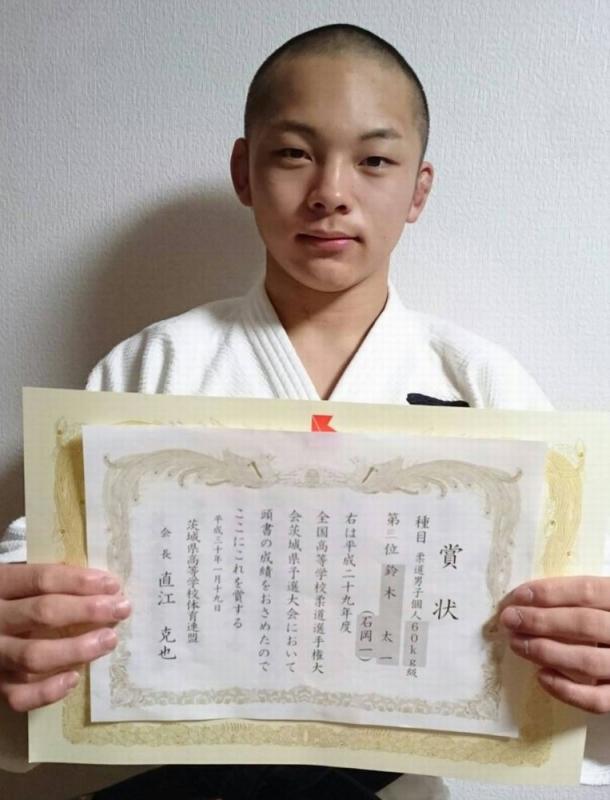 賞状
種目 柔道男子個人60kg級
第三位 鈴木 太一
(石岡一)
右は平成二十九年度
全国高等学校柔道選手権大
会茨城県予選大会において
頭書の成績をおさめたので
ここにこれを賞する
平成三十年一月十九日
茨城県高等学校体育連盟
会長 直江 克也